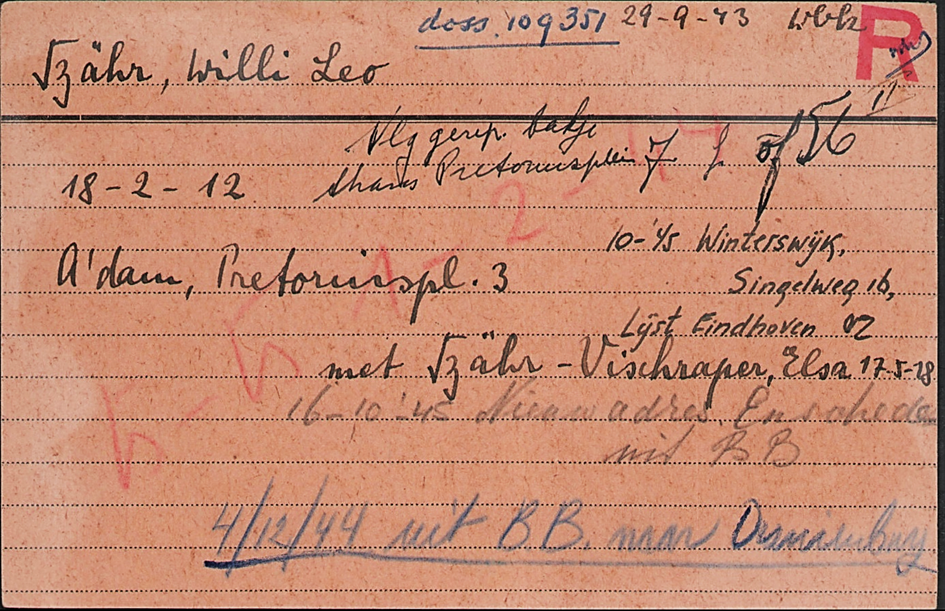 doss. 109351 29-9-43 Wbk R
Szähr, Willi Leo
Vlg gerip. bakje
thans Pretoriusplein 7
of 56 11
18-2-12
10-'45 Winterswijk,
A'dam, Pretoriuspl. 3
Singelweg 16,
Lijst Eindhoven 02
met Szähr-Vischraper, Elsa 17-5-18
16-10-'45 Nieuw adres Enschede
uit BB
4/12/44 uit B.B. naar Oranienburg